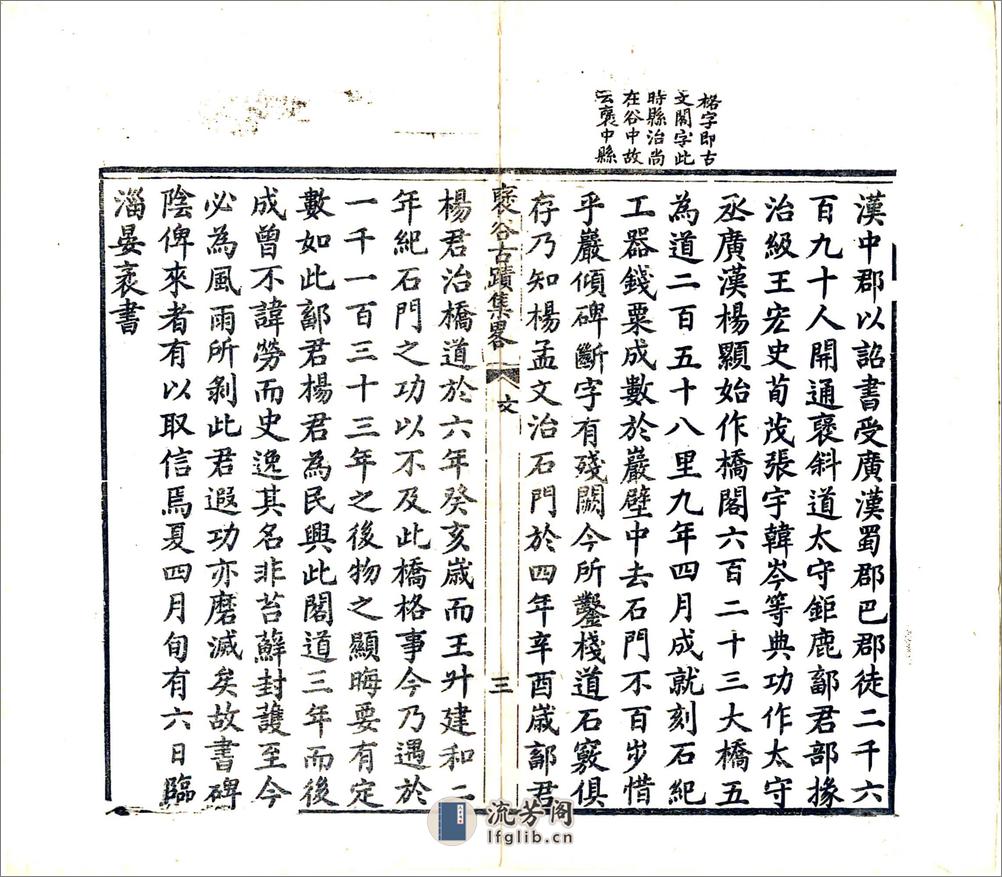 格字即古
文閣字此
時縣治尚
在谷中故
云襃中縣
漢中郡以詔書受廣漢蜀郡巴郡徒二千六
百九十人開通襃斜道太守鉅鹿鄐君部掾
治級王宏史荀茂張宇韓岑等典功作太守
丞廣漢楊顯始作橋閣六百二十三大橋五
為道二百五十八里九年四月成就刻石紀
工器錢粟成數於巖壁中去石門不百步惜
乎巖傾碑斷字有殘闕今所鑿棧道石竅俱
存乃知楊孟文治石門於四年辛酉歲鄐君
襃谷古蹟集畧
文
三
楊君治橋道於六年癸亥歲而王升建和二
年紀石門之功以不及此橋格事今乃遇於
一千一百三十三年之後物之顯晦要有定
數如此鄐君楊君為民興此閣道三年而後
成曾不諱勞而史逸其名非苔蘚封護至今
必為風雨所剝此君遐功亦磨滅矣故書碑
陰俾來者有以取信焉夏四月旬有六日臨
淄晏袤書
流芳阁
lfglib.cn